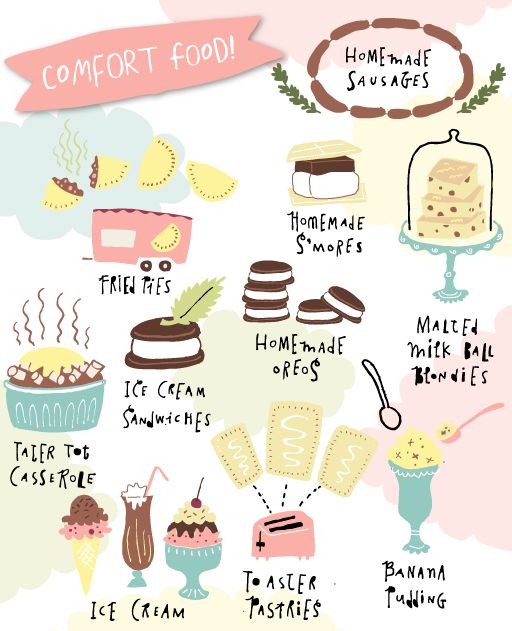 COMFORT FOOD!
HOMEMADE
SAUSAGES
HOMEMADE
S'MORES
FRIED PIES
MALTED
MILK BALL
BLONDIES
HOMEMADE
OREOS
ICE CREAM
SANDWICHES
TATER TOT
CASSEROLE
ICE CREAM
TOASTER
PASTRIES
BANANA
PUDDING